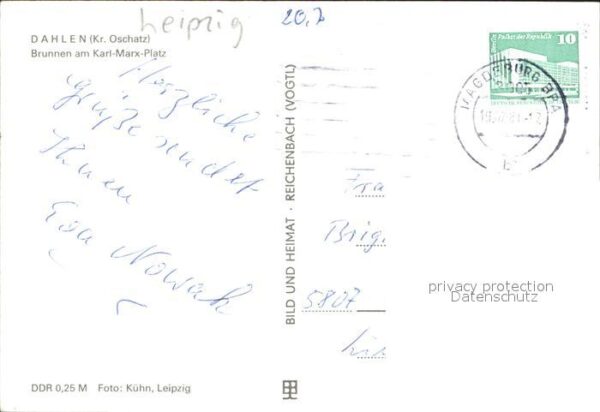 Leipzig
20,7
DAHLEN (Kr. Oschatz)
Brunnen am Karl-Marx-Platz
Herzliche
Grüße sendet
Ihnen
Eva Nowak
BILD UND HEIMAT · REICHENBACH (VOGTL)
Berlin Palast der Republik 10
MAGDEBURG BPA
Fra
Brig.
5807
privacy protection
Datenschutz
DDR 0,25 M Foto: Kühn, Leipzig